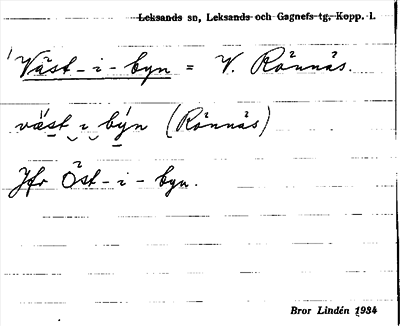 Leksands sn, Leksands och Gagnefs tg, Kopp. l.
Väst-i-byn = V. Rönnås.
väst i býn (Rönnås)
Jfr Öst-i-byn.
Bror Lindén 1934